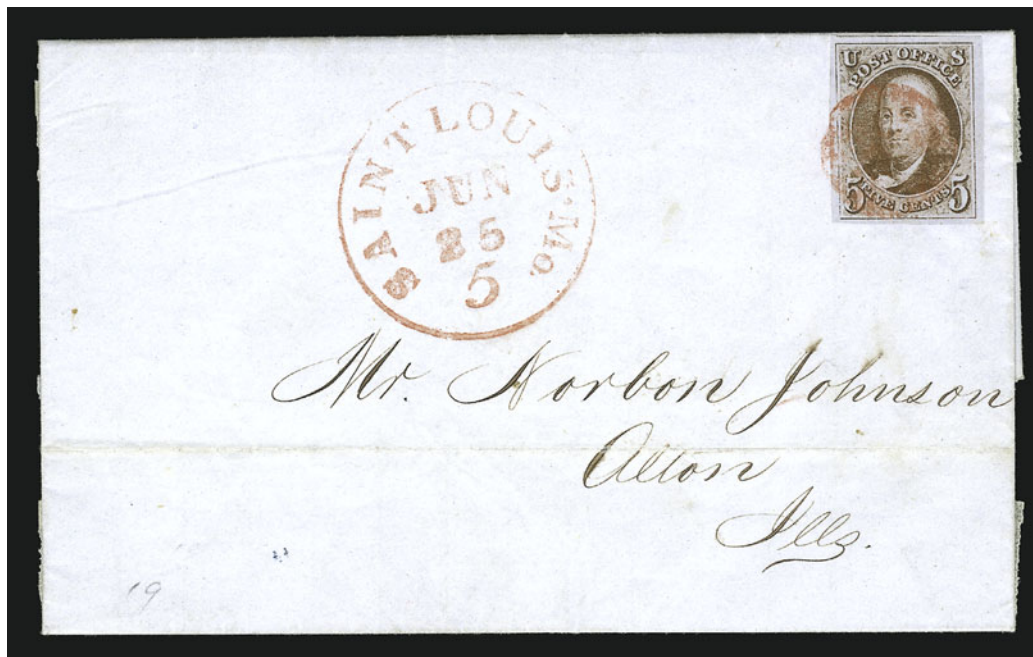 U S
POST OFFICE
5 FIVE CENTS 5
SAINT LOUIS Mo.
JUN
25
5
Mr. Norbon Johnson
Alton
Ills.
19